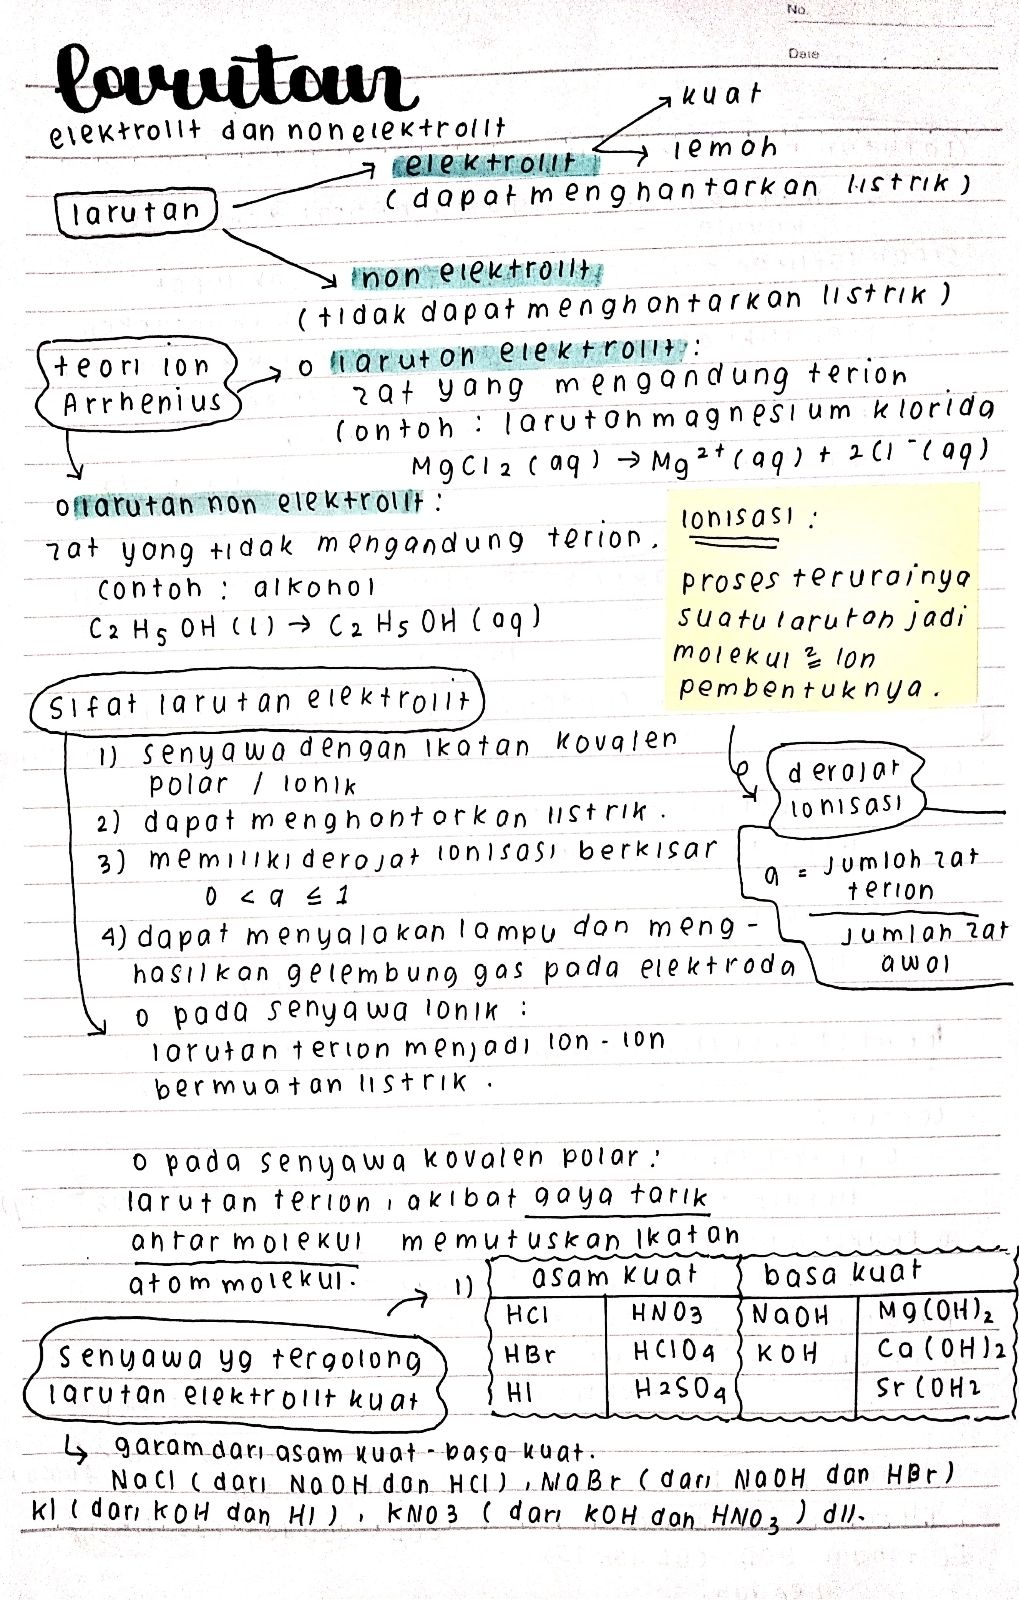 No.
Date
larutan
elektrolit dan nonelektrolit
kuat
elektrolit
lemah
(dapat menghantarkan listrik)
larutan
non elektrolit
(tidak dapat menghantarkan listrik)
teori ion
Arrhenius
o larutan elektrolit:
zat yang mengandung terion
Contoh : larutan magnesium klorida
MgCl2 (aq) → Mg²⁺(aq) + 2Cl⁻(aq)
o larutan non elektrolit:
zat yang tidak mengandung terion.
contoh : alkohol
C2H5OH (l) → C2H5OH (aq)
Ionisasi :
proses terurainya
suatu larutan jadi
molekul ² = ion
pembentuknya.
Sifat larutan elektrolit
1) senyawa dengan ikatan kovalen
polar / ionik
2) dapat menghantarkan listrik.
3) memiliki derajat ionisasi berkisar
0 < a ≤ 1
4) dapat menyalakan lampu dan meng-
hasilkan gelembung gas pada elektroda
derajat
ionisasi
a = jumlah zat
terion
jumlah zat
awal
o pada senyawa ionik :
larutan terion menjadi ion-ion
bermuatan listrik.
o pada senyawa kovalen polar:
larutan terion, akibat gaya tarik
antar molekul memutuskan ikatan
atom molekul.
1) asam kuat basa kuat
HCl HNO3 NaOH Mg(OH)2
HBr HClO4 KOH Ca(OH)2
HI H2SO4 Sr(OH2
Senyawa yg tergolong
larutan elektrolit kuat
↳ garam dari asam kuat-basa kuat.
NaCl (dari NaOH dan HCl), NaBr (dari NaOH dan HBr)
KI (dari KOH dan HI), KNO3 (dari KOH dan HNO3) dll.